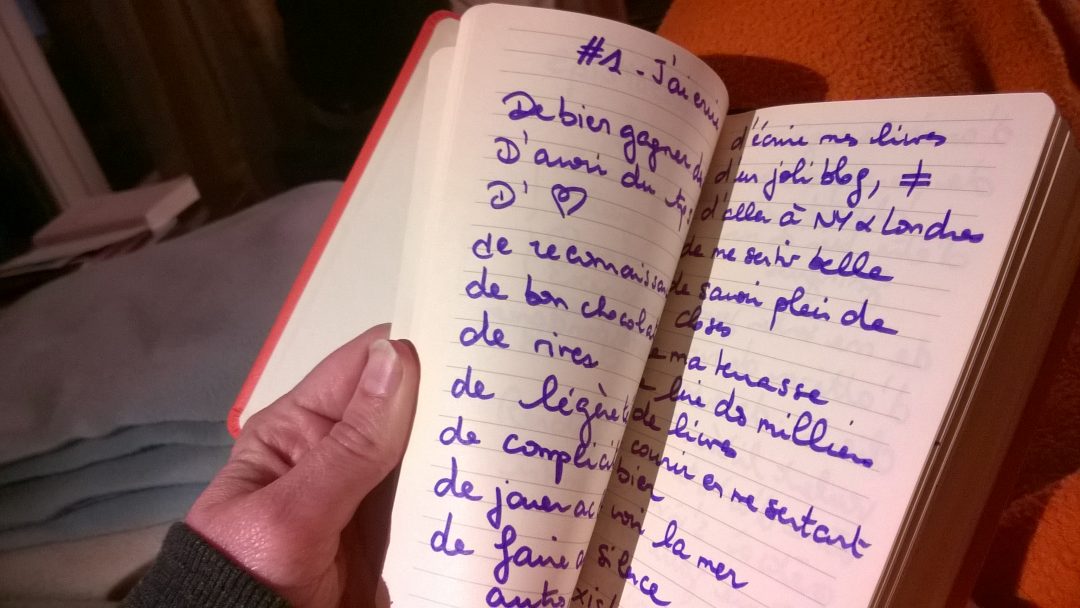 #1 - J'ai envie
De bien gagner
D'avoir du tps
D' ♡
de reconnaissan
de bon chocolat
de rires
de légère
de complici
de jouer
de faire
d'écrire mes livres
d'un joli blog, ≠
d'aller à NY & Londres
de me sentir belle
de savoir plein de
choses
ma terrasse
lire des milliers
de livres
courir en me sentant
bien
voir la mer
silence